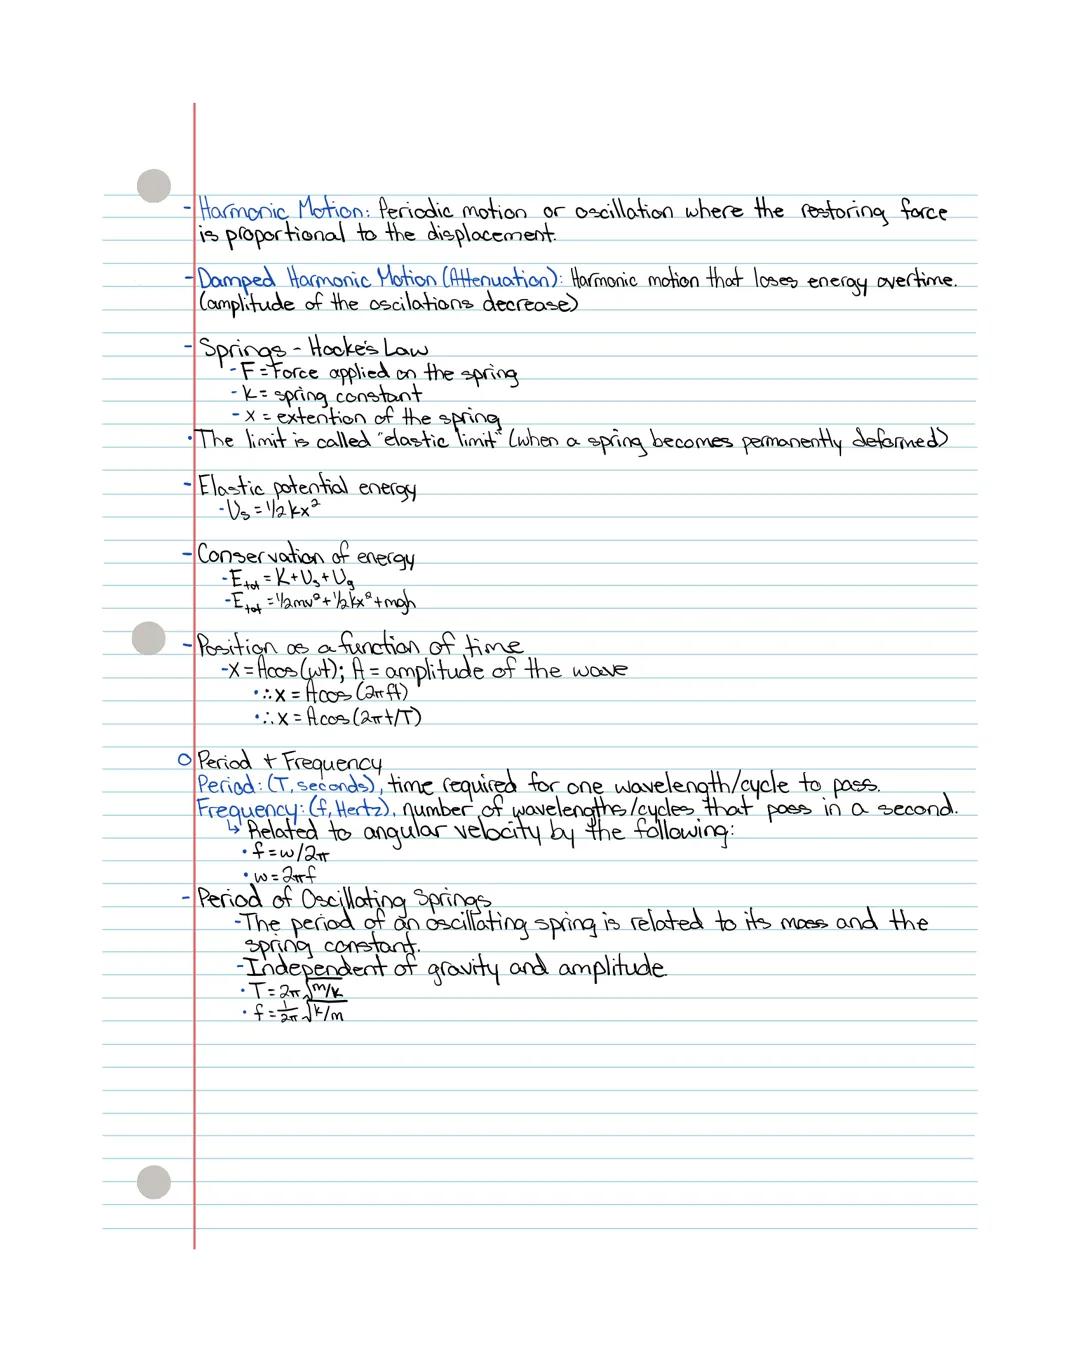 - Harmonic Motion: Periodic motion or oscillation where the restoring force
is proportional to the displacement.
- Damped Harmonic Motion (Attenuation): Harmonic motion that loses energy overtime.
(amplitude of the oscilations decrease)
- Springs - Hooke's Law
- F = Force applied on the spring
- k = spring constant
- x = extention of the spring
• The limit is called "elastic limit" (when a spring becomes permanently deformed)
- Elastic potential energy
- Us = 1/2 kx²
- Conservation of energy
- Etot = K + Us + Ug
- Etot = 1/2mv² + 1/2kx² + mgh
- Position as a function of time
- X = Acos(wt); A = amplitude of the wave
• ∴ x = Acos(2πft)
• ∴ x = Acos(2πt/T)
○ Period + Frequency
Period: (T, seconds), time required for one wavelength/cycle to pass.
Frequency: (f, Hertz), number of wavelengths/cycles that pass in a second.
↳ Related to angular velocity by the following:
• f = w/2π
• w = 2πf
- Period of Oscillating Springs
- The period of an oscillating spring is related to its mass and the
spring constant.
- Independent of gravity and amplitude
• T = 2π √m/k
• f = 1/2π √k/m